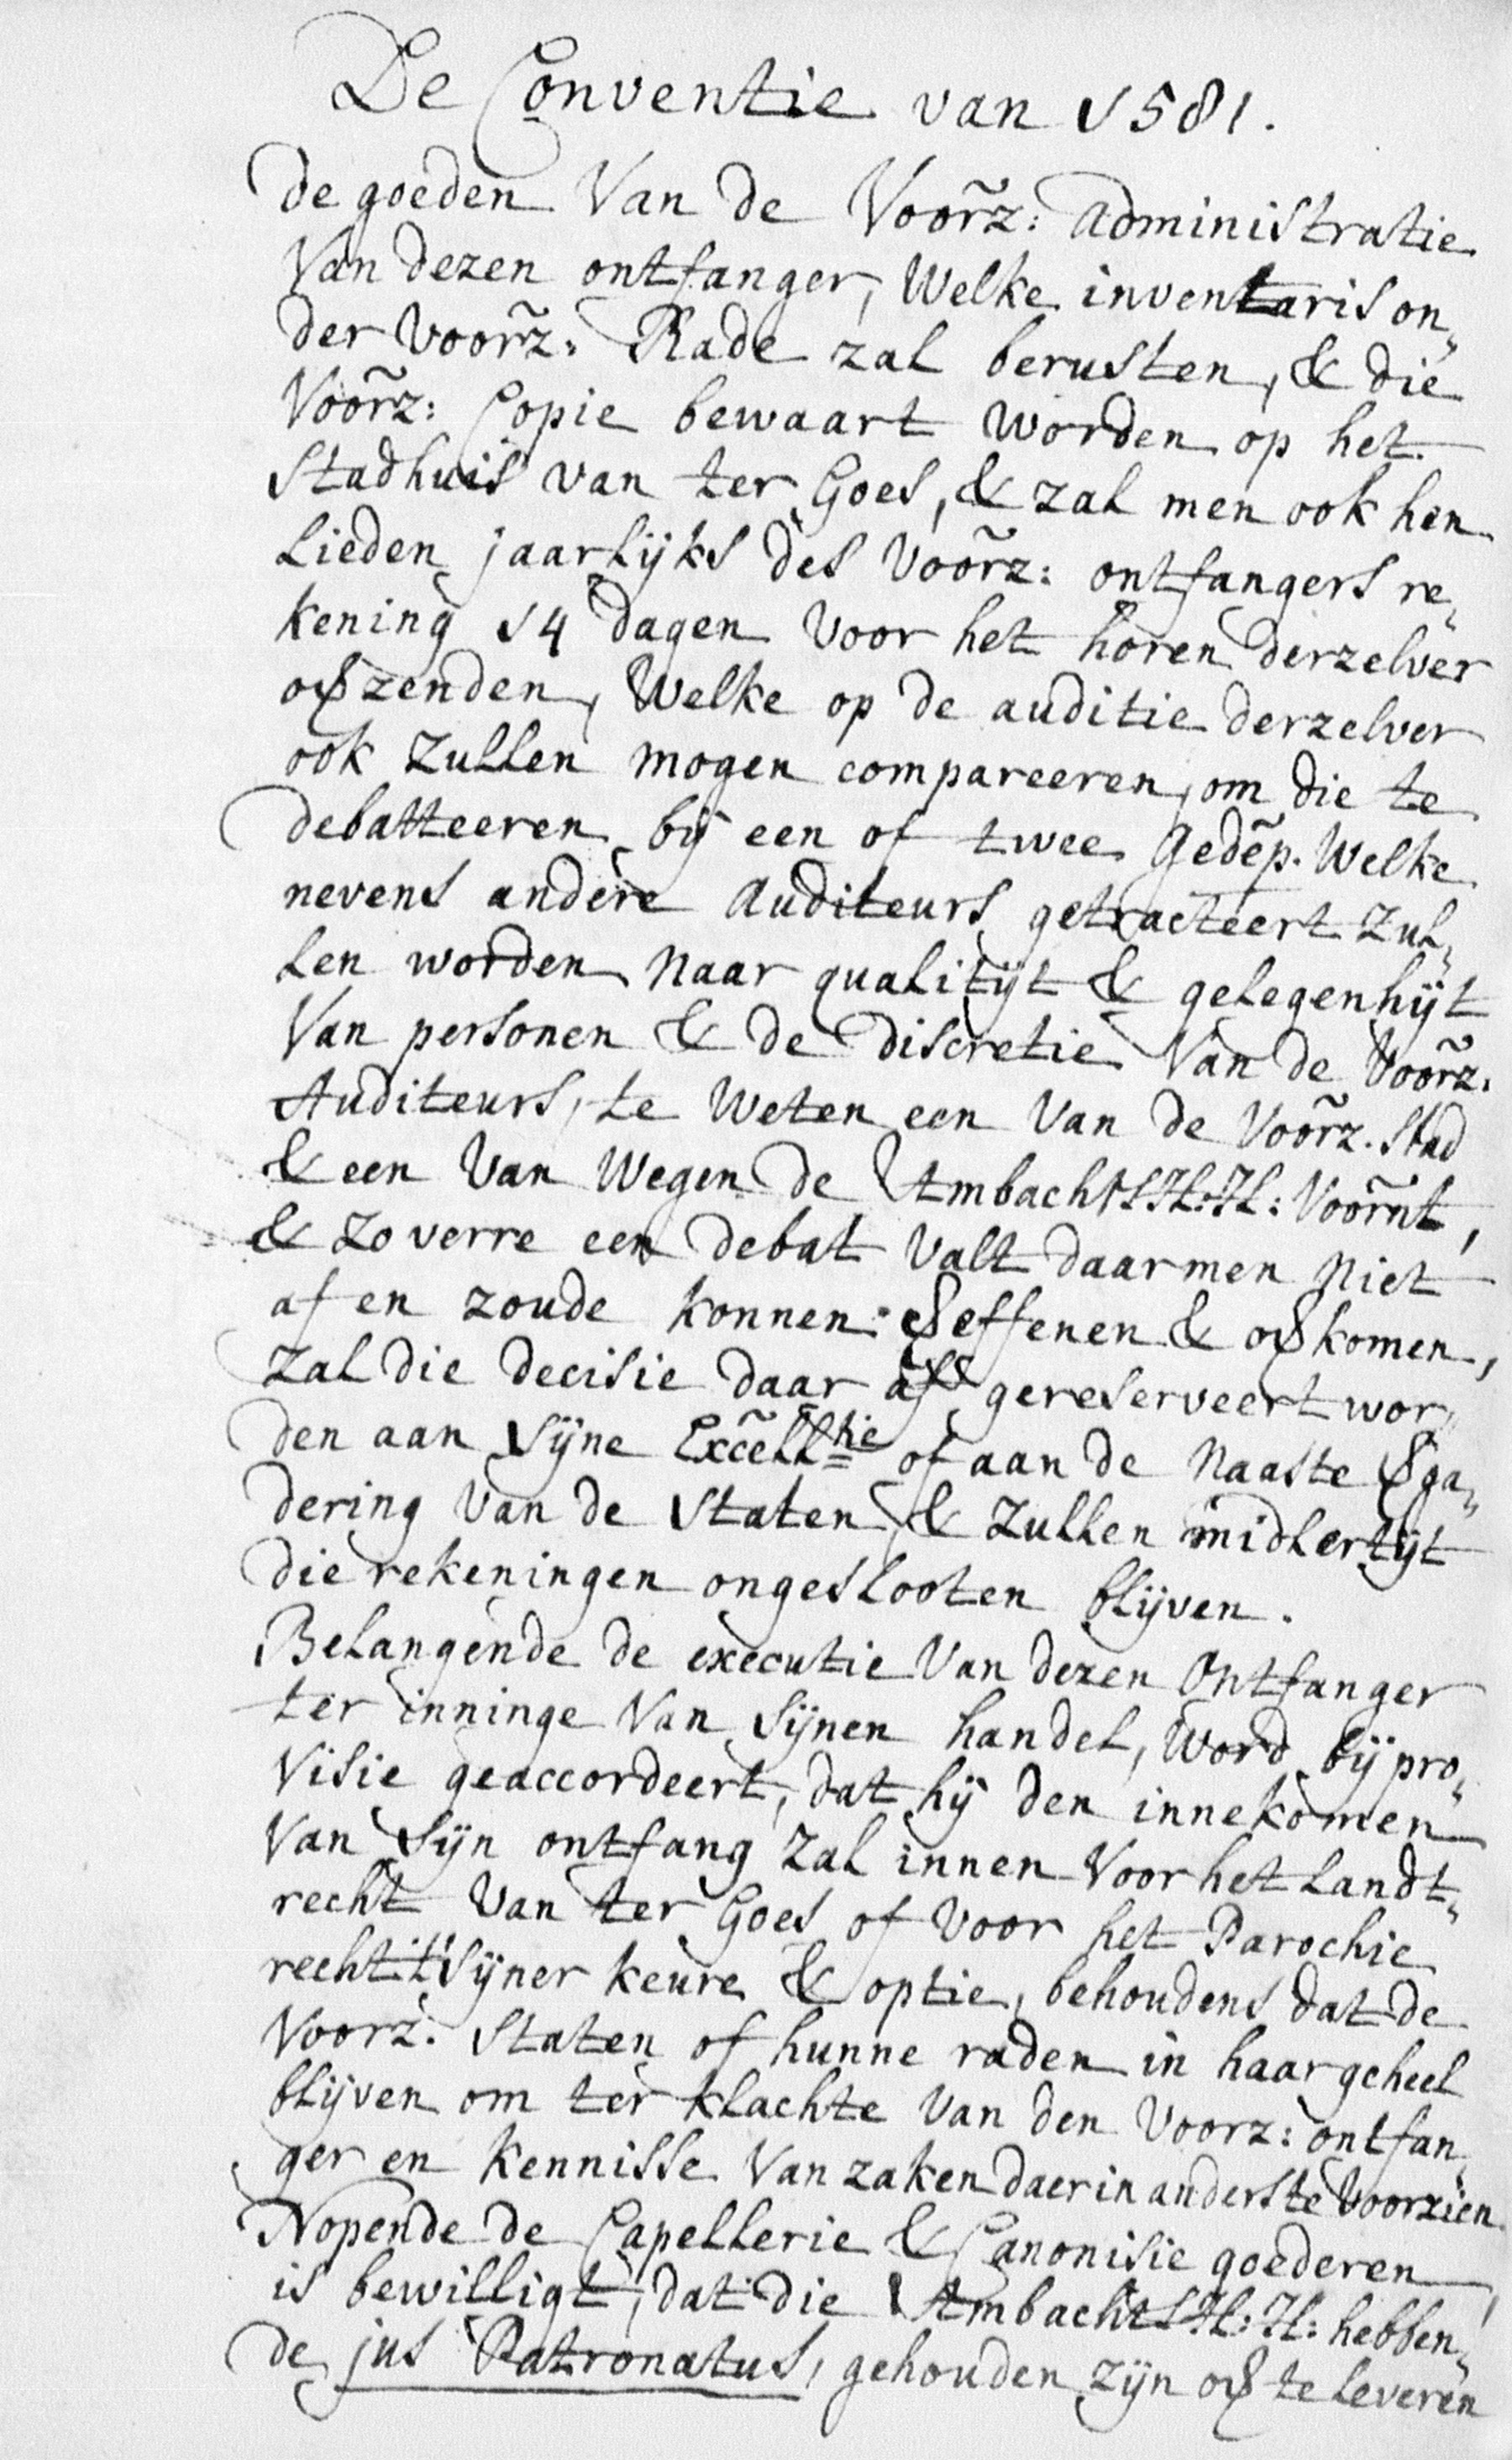 De Conventie van 1581.
de goeden Van de Voorz̃: administratie
Van dezen ontfanger, Welke inventaris on„
der Voorz̃: Rade zal berusten, & die
Voorz̃: Copie bewaart worden op het
Stadhuis van ter Goes, & zal men ook hen
Lieden jaarlijks des Voorz̃: ontfangers re„
kening 14 dagen Voor het horen derzelver
overzenden, Welke op de auditie derzelver
ook zullen mogen compareeren, om die te
debatteeren bij een of twee Gedẽp. Welke
nevens andere Auditeurs getracteert zul„
len worden naar qualitijt & gelegenhijt
Van personen & de discretie Van de Voorz̃:
Auditeurs, te weten een Van de Voorz̃. Stad
& een Van Wegen de Ambachts H:H: Voorñt,
& zo verre een debat Valt daar men niet
af en zoude konnen vereffenen & overkomen,
zal die decisie daar af gereserveert wor„
den aan Sijne Excẽll:tie of aan de naaste verga„
dering Van de Staten, & zullen midlertijt
die rekeningen ongeslooten blijven.
Belangende de executie Van dezen Ontfanger
ter inninge Van Sijnen handel, word bij pro„
Visie geaccordeert, dat hij den innekomen
Van Sijn ontfang zal innen Voor het Landt„
recht Van ter Goes of Voor het Parochie
recht t' Sijner keure & optie, behoudens dat de
Voorz. Staten of hunne raden in haar geheel
blijven om ter klachte Van den Voorz: ontfan„
ger en kennisse Van zaken daer in anders te Voorzien
Nopende de Capellerie & Canonisie goederen,
is bewilligt, dat die Ambachts H:H: hebben„
de jus Patronatus, gehouden zijn over te leveren